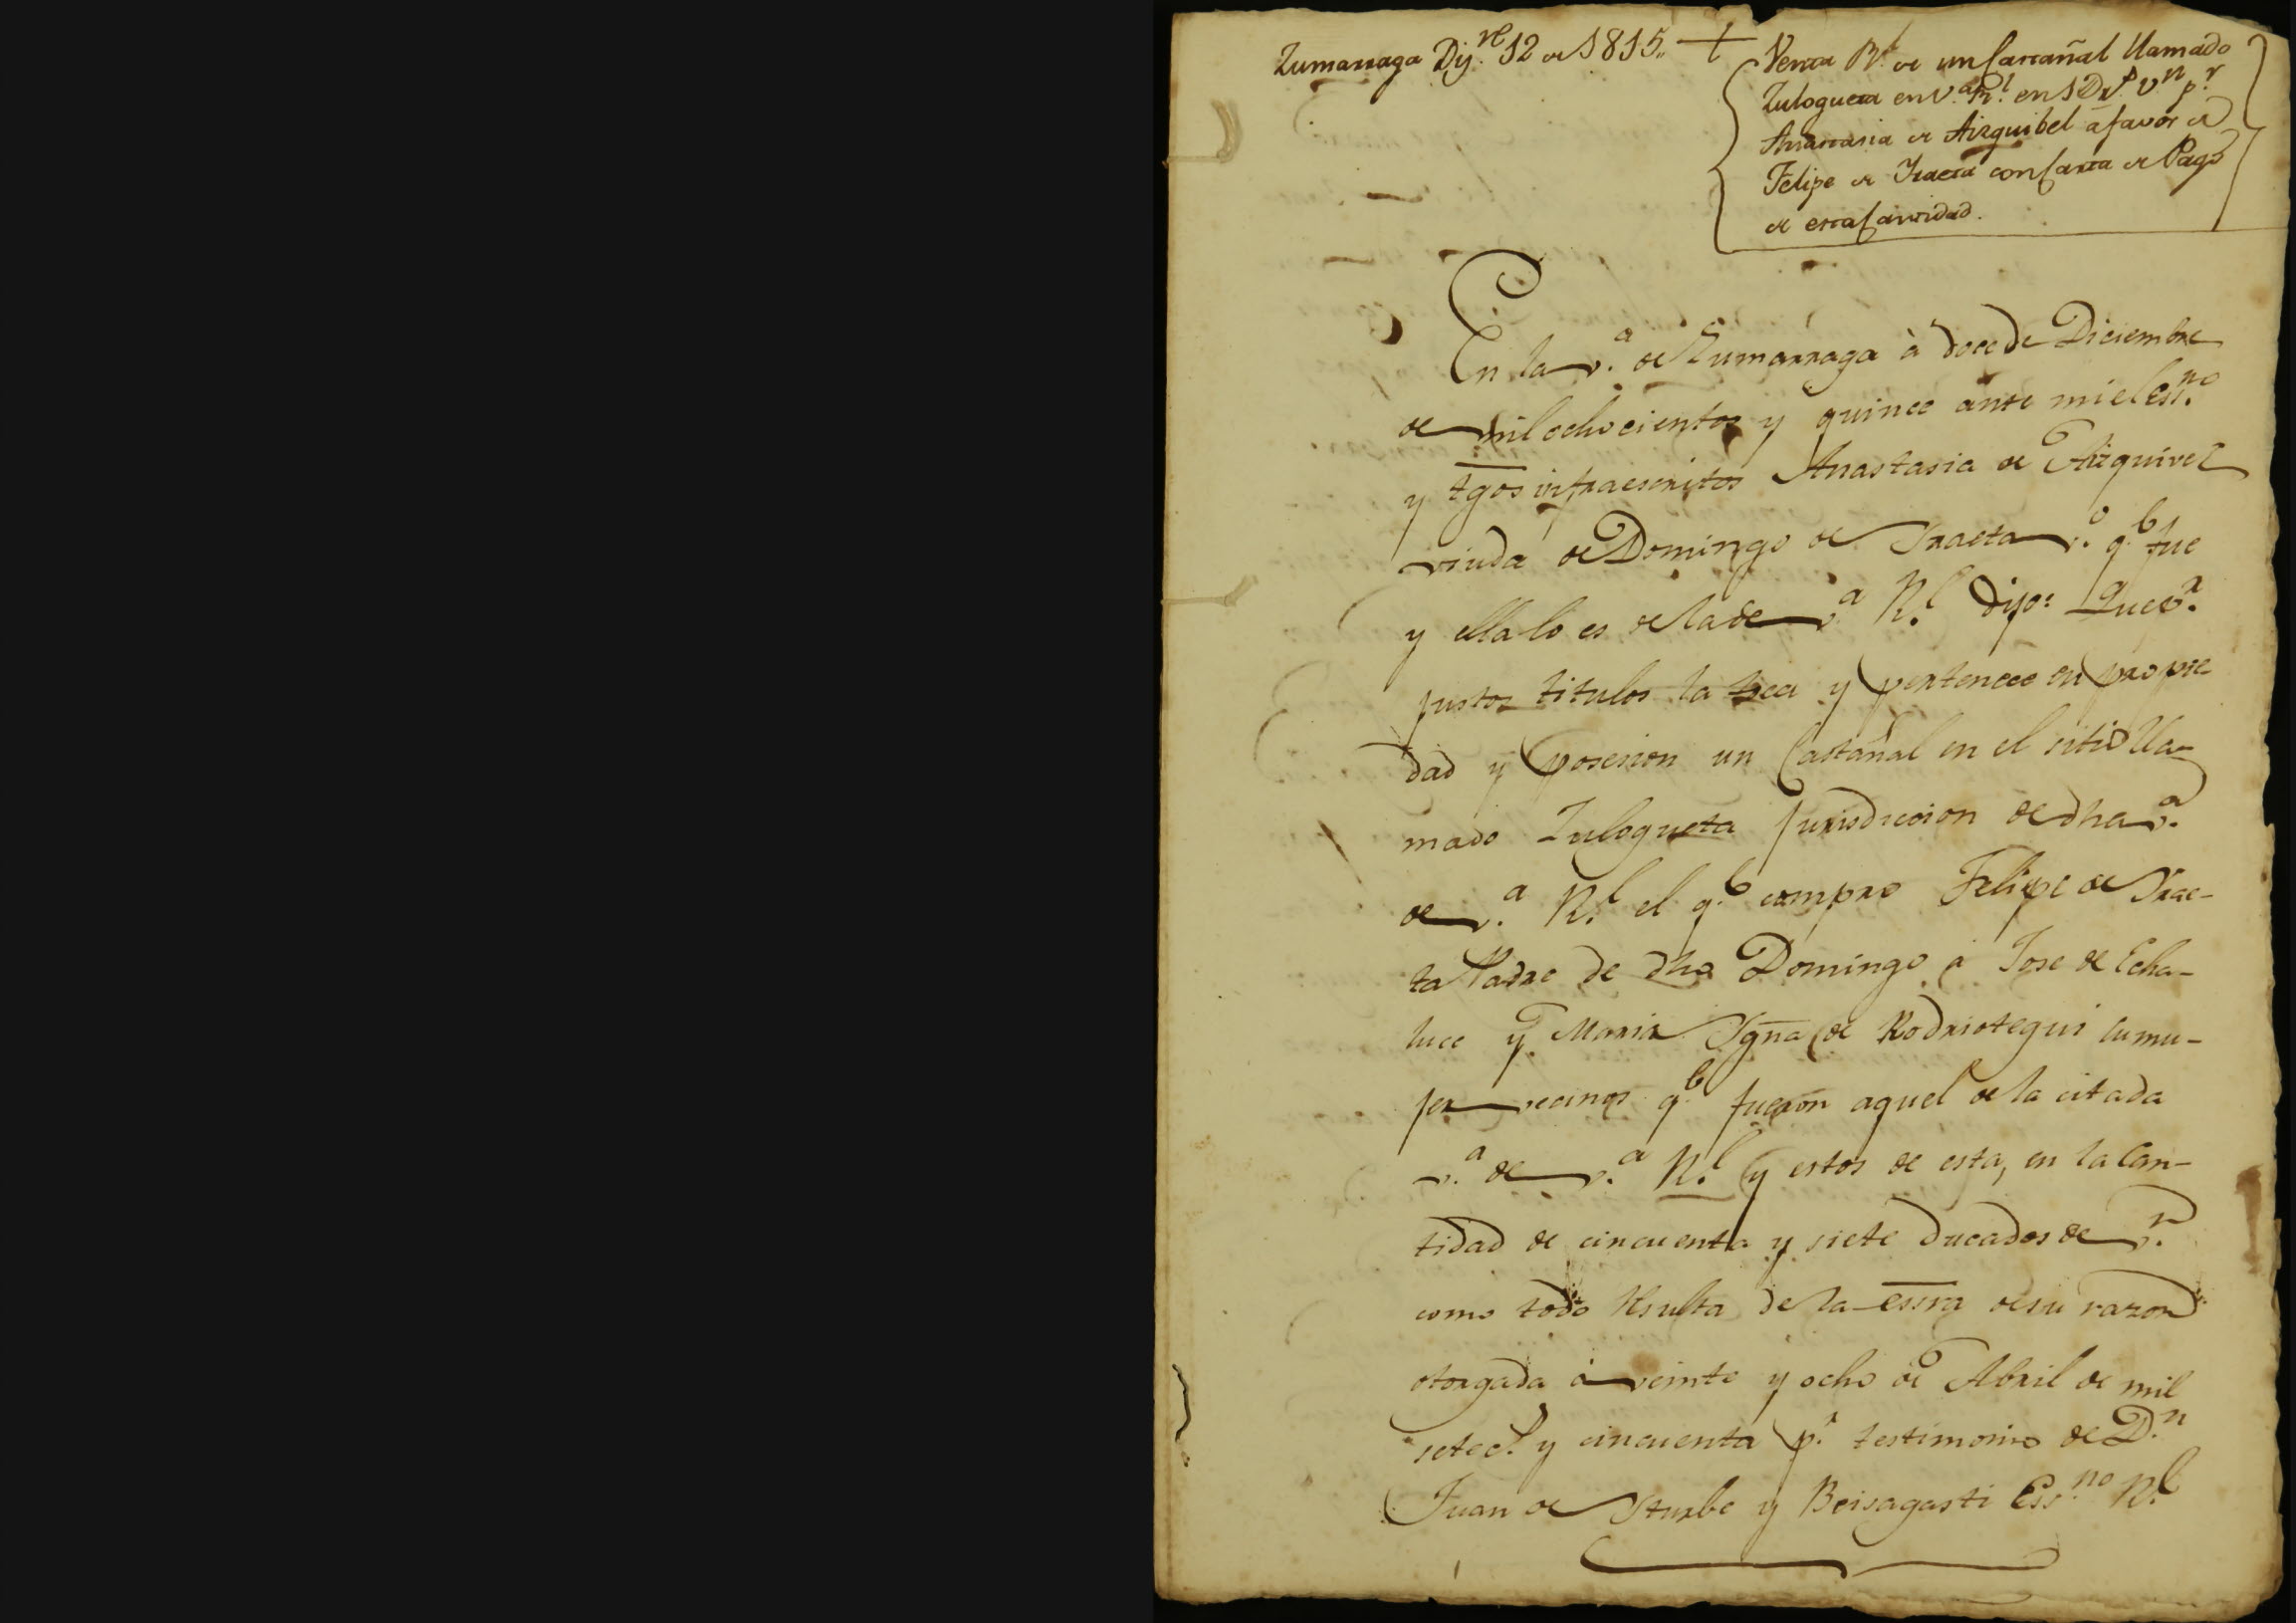 Zumarraga Dij.re 12 de 1815,,
Venta Rl. de un Castañal llamado
Zulogueta en V.a Rl. en 1D Ds. vn pr.
Anastasia de Aizquibel a favor de
Felipe de Iraeta con Carta de Pago
de esta Cantidad.
En la v.a de Zumarraga à doce de Diciembre
de mil ochocientos y quince ante mi el Ess.no
y tgos infraescritos Anastasia de Aizquivel
viuda de Domingo de Iraeta v.o q.e fue
y ella lo es de la de v.a R.l Dijo: Que p.r
justos titulos la toca y pertenece en propie
dad y posesion un Castañal en el sitio lla-
mado Zulogueta jurisdiccion de dha v.a
de v.a R.l el q.e compro Felipe de Irae-
ta Padre de dho Domingo à Jose de Echa-
luce y Maria Igna de Rodriotegui su mu-
jer vecinos q.e fueron aquel de la citada
v.a de v.a R.l y estos de esta, en la Can-
tidad de cincuenta y siete ducados de v.n
como todo resulta de la essra de su razon
otorgada à veinte y ocho de Abril de mil
setec.s y cincuenta p.r testimonio de D.n
Juan de Iturbe y Beisagasti Ess.no R.l